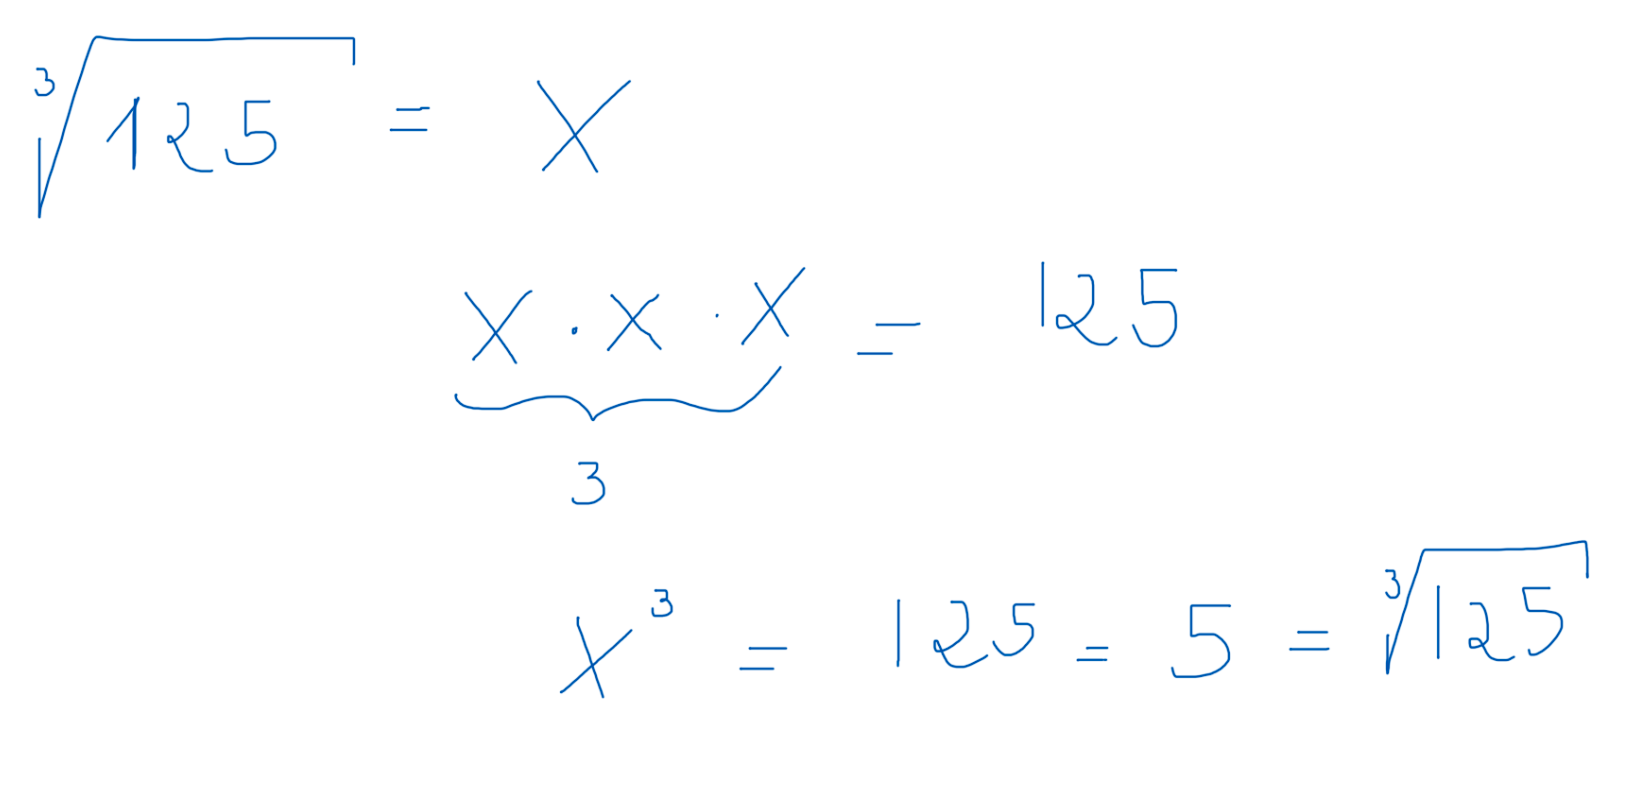 ∛125 = x
x · x · x = 125
3
x³ = 125 = 5 = ∛125